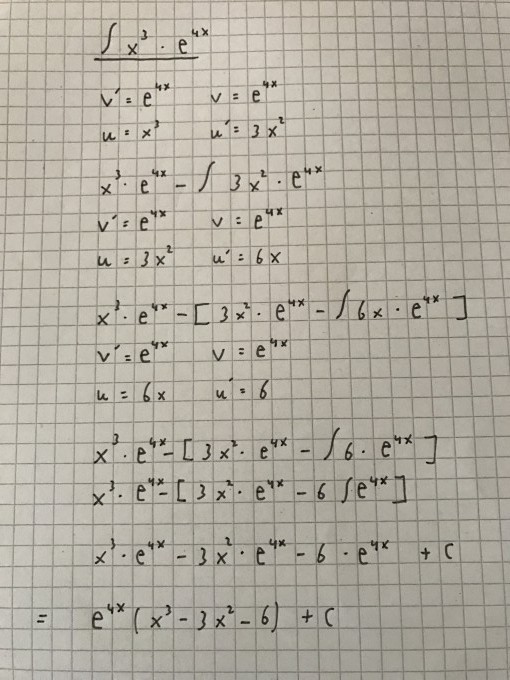 ∫ x³ · e⁴ˣ
v' = e⁴ˣ v = e⁴ˣ
u = x³ u' = 3x²
x³ · e⁴ˣ - ∫ 3x² · e⁴ˣ
v' = e⁴ˣ v = e⁴ˣ
u = 3x² u' = 6x
x³ · e⁴ˣ - [ 3x² · e⁴ˣ - ∫ 6x · e⁴ˣ ]
v' = e⁴ˣ v = e⁴ˣ
u = 6x u' = 6
x³ · e⁴ˣ - [ 3x² · e⁴ˣ - ∫ 6 · e⁴ˣ ]
x³ · e⁴ˣ - [ 3x² · e⁴ˣ - 6 ∫ e⁴ˣ ]
x³ · e⁴ˣ - 3x² · e⁴ˣ - 6 · e⁴ˣ + C
= e⁴ˣ ( x³ - 3x² - 6 ) + C